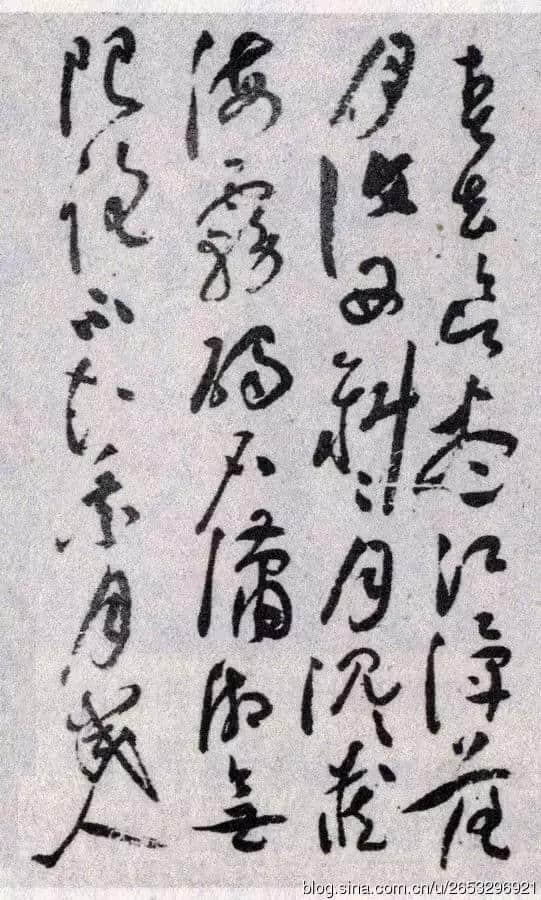 春去欲尽江潭落
月復西斜々月沉々藏
海霧碣石瀟湘無
限路不知乘月幾人
blog.sina.com.cn/u/2653296921